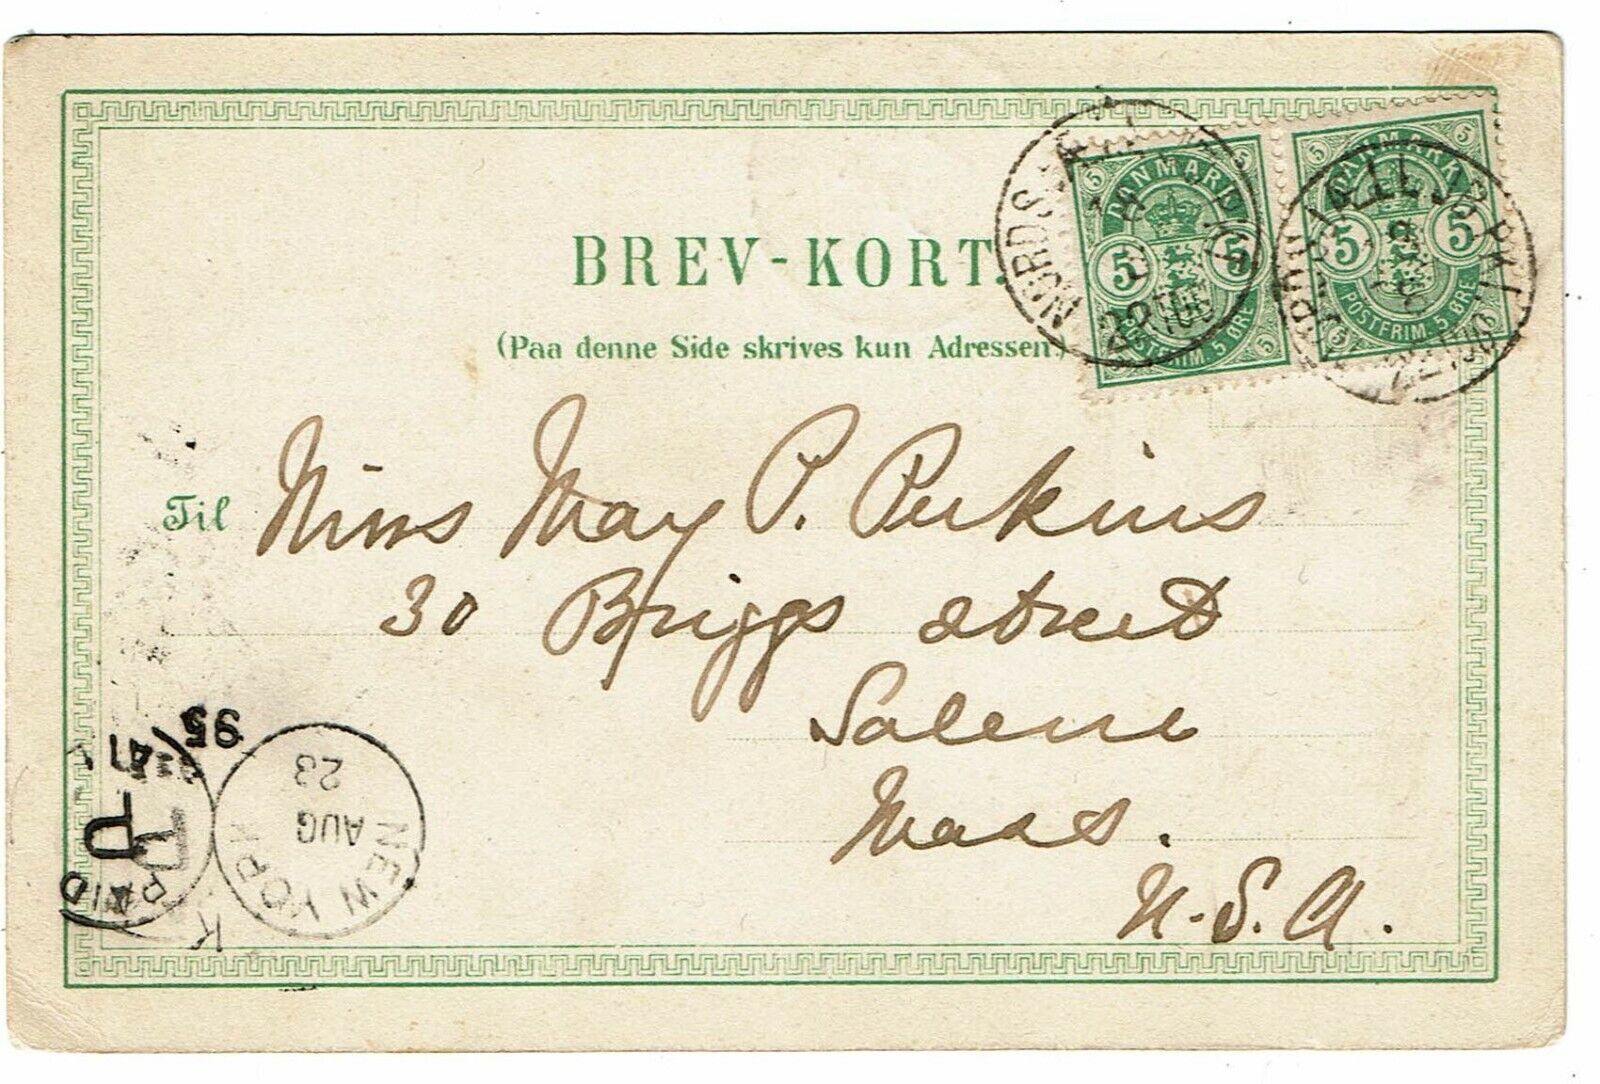 BREV-KORT.
(Paa denne Side skrives kun Adressen.)
DANMARK
5 5
POSTFRIM. 5 ØRE
DANMARK
5 5
POSTFRIM. 5 ØRE
Til Miss May P. Perkins
30 Briggs street
Salem
Mass.
U.S.A.
NEW YORK
AUG
23
PAID
95
K